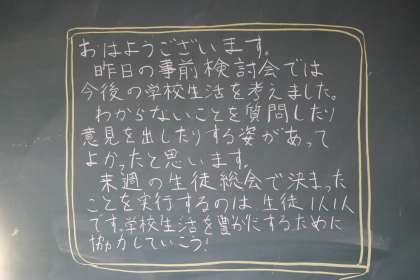 おはようございます。
昨日の事前検討会では
今後の学校生活を考えました。
わからないことを質問したり
意見を出したりする姿があって
よかったと思います。
来週の生徒総会で決まった
ことを実行するのは生徒1人1人
です。学校生活を豊かにするために
協力していこう!